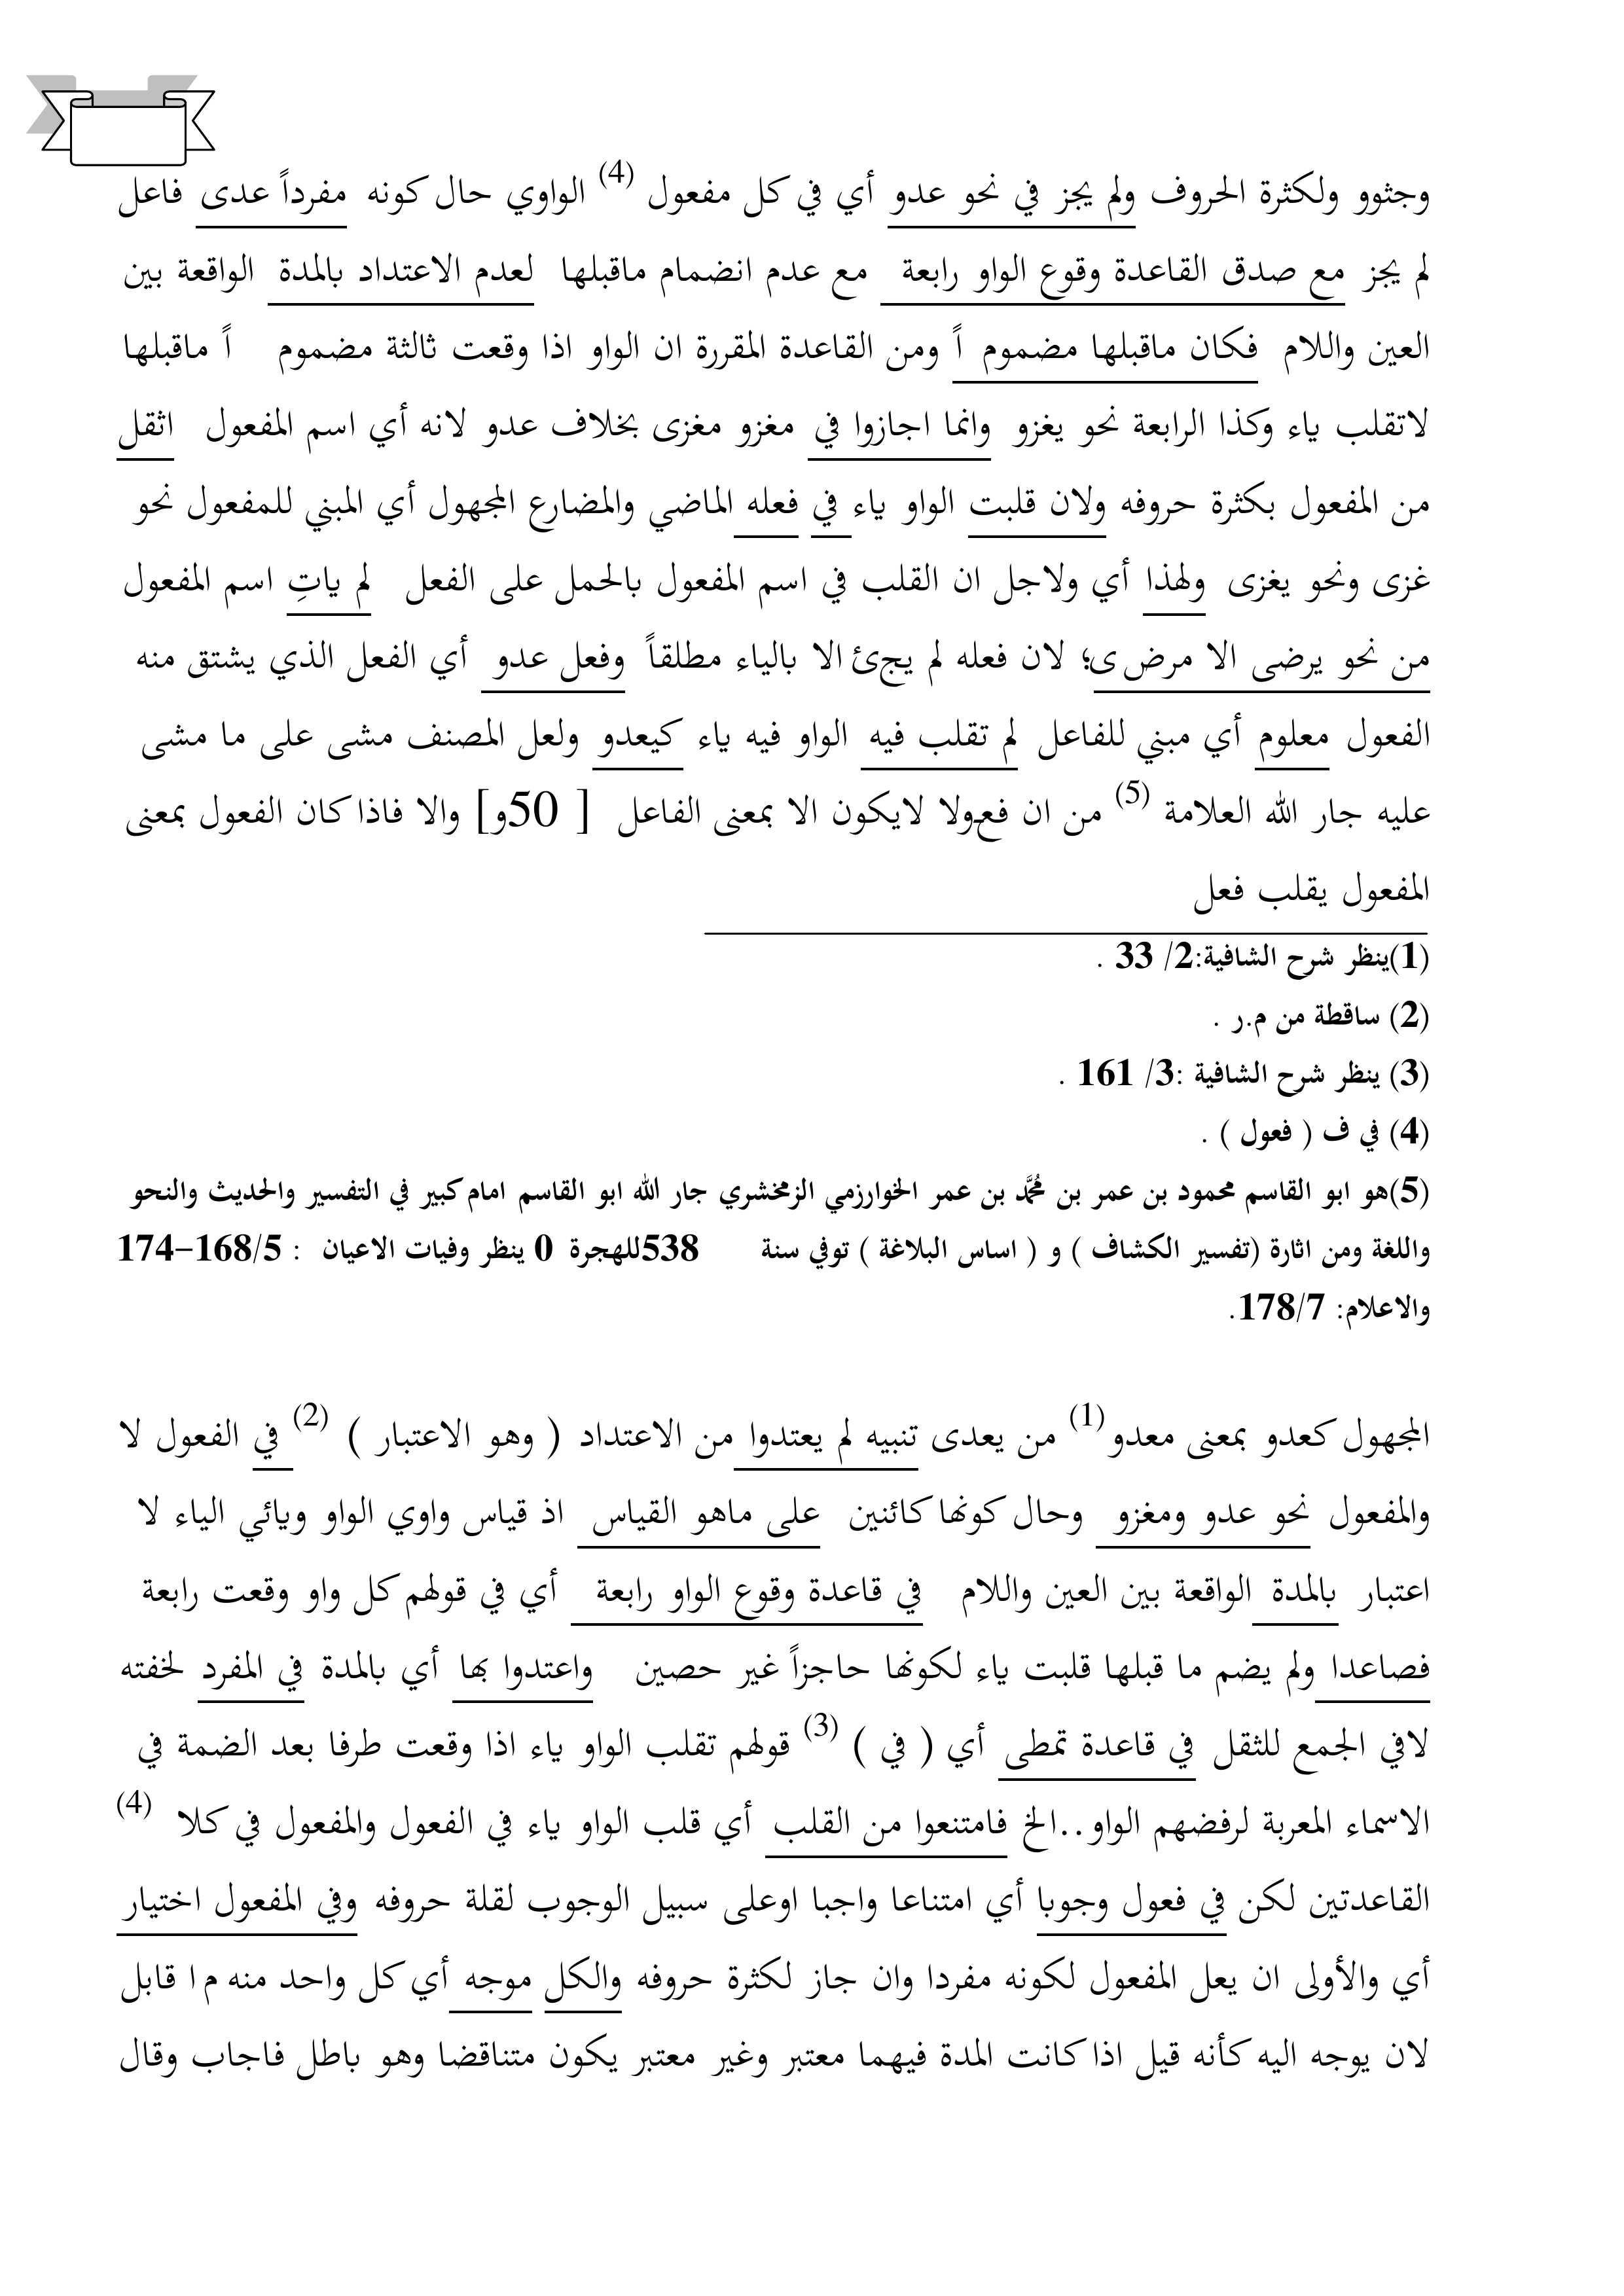 وجثوو ولكثرة الحروف ولم يجز في نحو عدو أي في كل مفعول (4) الواوي حال كونه مفرداً عدى فاعل
لم يجز مع صدق القاعدة وقوع الواو رابعة مع عدم انضمام ماقبلها لعدم الاعتداد بالمدة الواقعة بين
العين واللام فكان ماقبلها مضموم اً ومن القاعدة المقررة ان الواو اذا وقعت ثالثة مضموم اً ماقبلها
لاتقلب ياء وكذا الرابعة نحو يغزو وانما اجازوا في مغزو مغزى بخلاف عدو لانه أي اسم المفعول اثقل
من المفعول بكثرة حروفه ولان قلبت الواو ياء في فعله الماضي والمضارع المجهول أي المبني للمفعول نحو
غزى ونحو يغزى ولهذا أي ولاجل ان القلب في اسم المفعول بالحمل على الفعل لم ياتِ اسم المفعول
من نحو يرضى الا مرض ى؛ لان فعله لم يجئ الا بالياء مطلقاً وفعل عدو أي الفعل الذي يشتق منه
الفعول معلوم أي مبني للفاعل لم تقلب فيه الواو فيه ياء كيعدو ولعل المصنف مشى على ما مشى
عليه جار الله العلامة (5) من ان فعولا لايكون الا بمعنى الفاعل [ 50و] والا فاذا كان الفعول بمعنى
المفعول يقلب فعل
(1)ينظر شرح الشافية:2/ 33 .
(2) ساقطة من م.ر .
(3) ينظر شرح الشافية :3/ 161 .
(4) في ف ( فعول ) .
(5)هو ابو القاسم محمود بن عمر بن مُحَمَّد بن عمر الخوارزمي الزمخشري جار الله ابو القاسم امام كبير في التفسير والحديث والنحو
واللغة ومن اثارة (تفسير الكشاف ) و ( اساس البلاغة ) توفي سنة 538للهجرة 0 ينظر وفيات الاعيان : 168/5–174
والاعلام: 178/7.
المجهول كعدو بمعنى معدو(1) من يعدى تنبيه لم يعتدوا من الاعتداد ( وهو الاعتبار ) (2) في الفعول لا
والمفعول نحو عدو ومغزو وحال كونها كائنين على ماهو القياس اذ قياس واوي الواو ويائي الياء لا
اعتبار بالمدة الواقعة بين العين واللام في قاعدة وقوع الواو رابعة أي في قولهم كل واو وقعت رابعة
فصاعدا ولم يضم ما قبلها قلبت ياء لكونها حاجزاً غير حصين واعتدوا بها أي بالمدة في المفرد لخفته
لافي الجمع للثقل في قاعدة تمطى أي ( في ) (3) قولهم تقلب الواو ياء اذا وقعت طرفا بعد الضمة في
الاسماء المعربة لرفضهم الواو..الخ فامتنعوا من القلب أي قلب الواو ياء في الفعول والمفعول في كلا (4)
القاعدتين لكن في فعول وجوبا أي امتناعا واجبا اوعلى سبيل الوجوب لقلة حروفه وفي المفعول اختيار
أي والأولى ان يعل المفعول لكونه مفردا وان جاز لكثرة حروفه والكل موجه أي كل واحد منه م ا قابل
لان يوجه اليه كأنه قيل اذا كانت المدة فيهما معتبر وغير معتبر يكون متناقضا وهو باطل فاجاب وقال